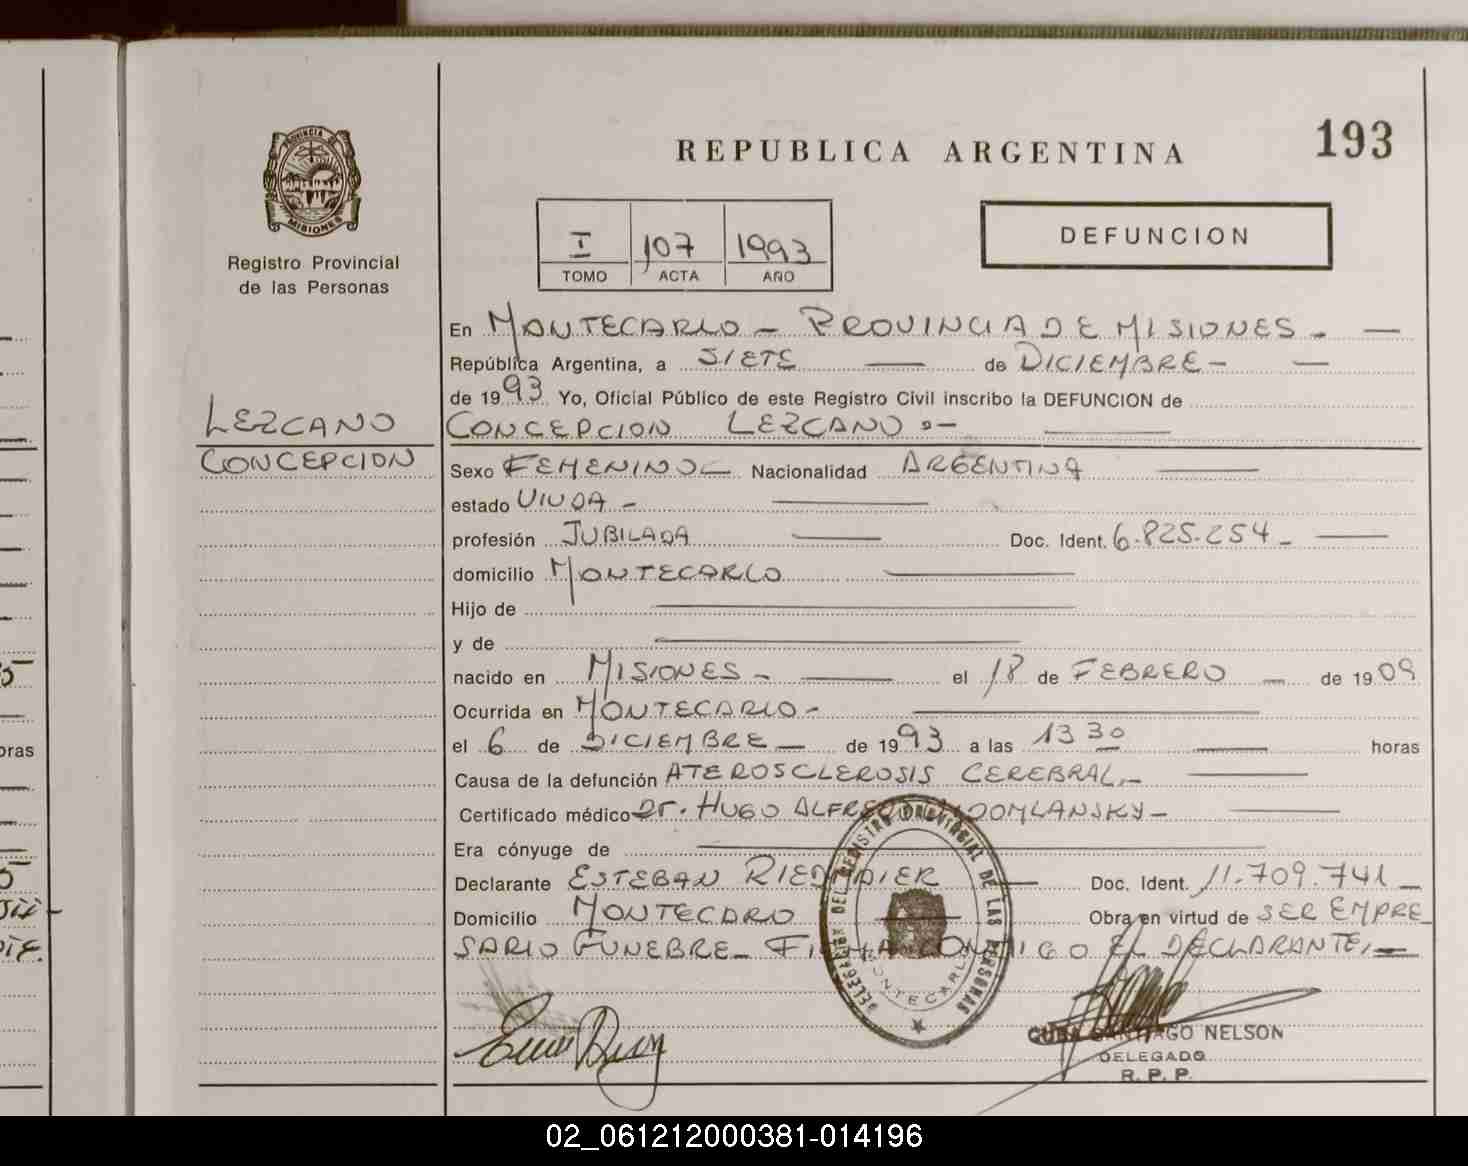 193
REPUBLICA ARGENTINA
PROVINCIA DE
MISIONES
Registro Provincial
de las Personas
DEFUNCION
I 107 1993
TOMO ACTA AÑO
En MONTECARLO - PROVINCIA DE MISIONES -
República Argentina, a SIETE de DICIEMBRE -
de 1993 Yo, Oficial Público de este Registro Civil inscribo la DEFUNCION de
LEZCANO
CONCEPCION LEZCANO.-
CONCEPCION
Sexo FEMENINO - Nacionalidad ARGENTINA
estado VIUDA -
profesión JUBILADA Doc. Ident. 6.825.254 -
domicilio MONTECARLO
Hijo de
y de
nacido en MISIONES - el 18 de FEBRERO - de 1909
Ocurrida en MONTECARLO -
el 6 de DICIEMBRE - de 1993 a las 13 30 horas
Causa de la defunción ATEROSCLEROSIS CEREBRAL.-
Certificado médico Dr. HUGO ALFREDO DOMLANSKY -
Era cónyuge de
Declarante ESTEBAN Doc. Ident. 11.709.741 -
Domicilio MONTECARLO Obra en virtud de SER EMPRE
SARIO FUNEBRE - FIRMA CONMIGO EL DECLARANTE.-
DELEGACION DEL REGISTRO PROVINCIAL DE LAS PERSONAS
MONTECARLO
CUBA SANTIAGO NELSON
DELEGADO
R. P. P.
oras
02_061212000381-014196